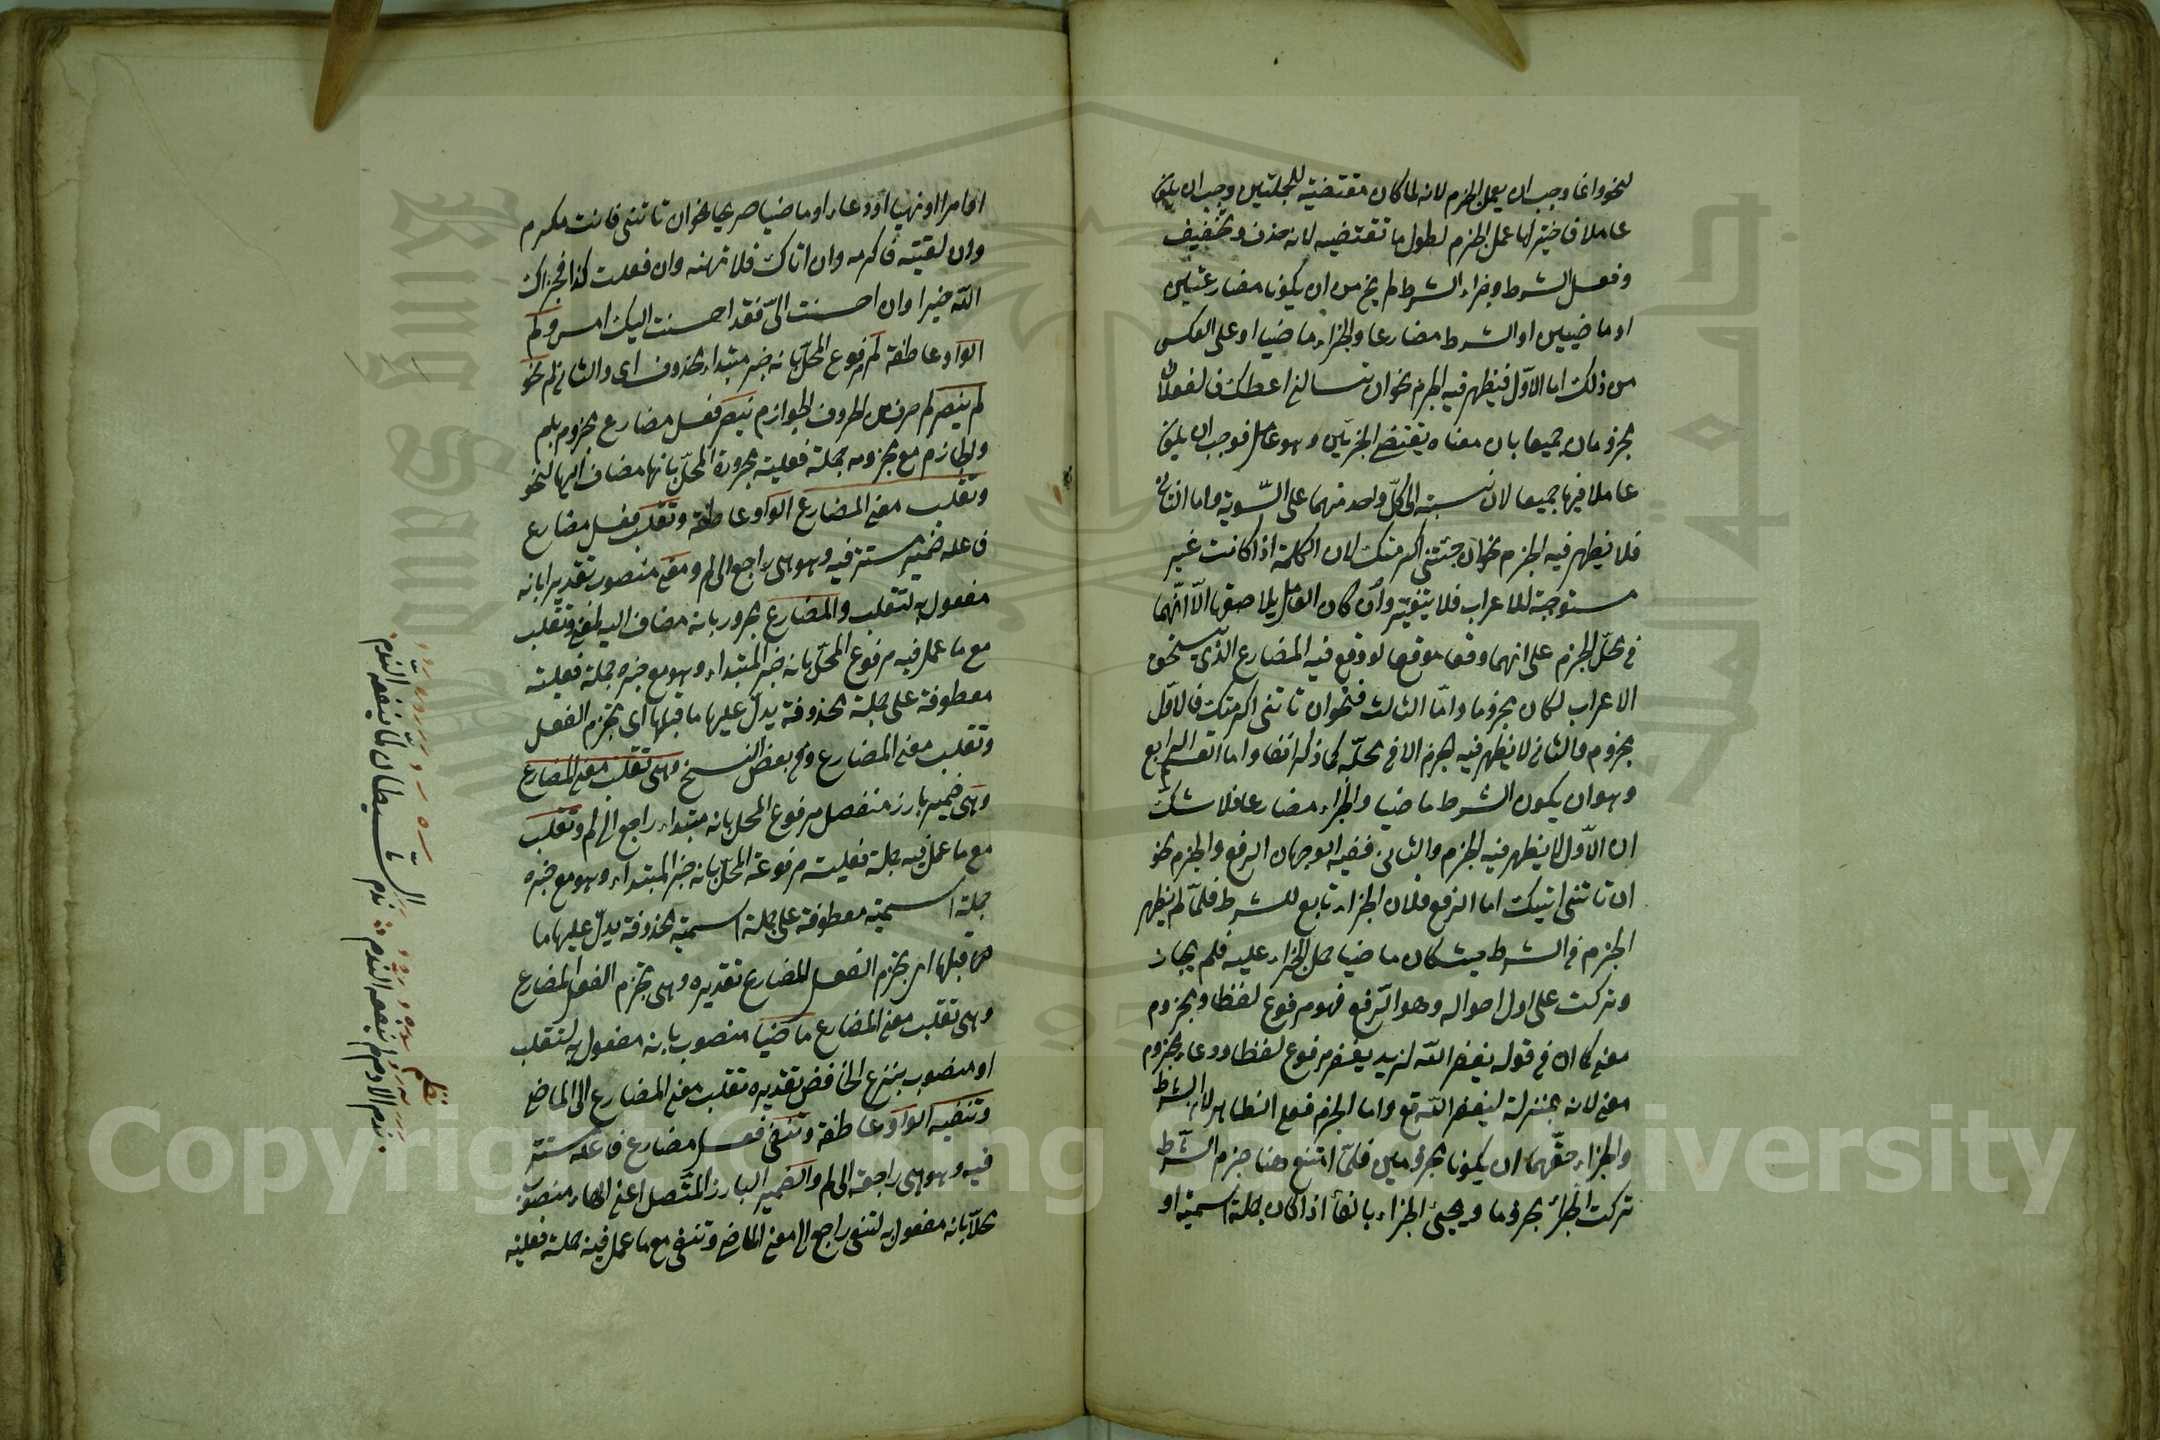 لنحو وانما وجب ان يعمل الجزم لانه لما كان مقتضيه للجملتين وجب ان يكون
عاملا فاختير لها عمل الجزم لطول ما تقتضيه لانه حذف وتخفيف
وفعل الشرط وجزاء الشرط لم يخ من ان يكونا مضارعتين
او ماضيين او الشرط مضارعا والجزاء ماضيا او على العكس
من ذلك اما الاول فيظهر فيه الجزم نحو ان تسالني اعطك فالفعلان
مجزومان جميعا بان معناه يقتضى الجزئين وهو عامل فوجب ان يكون
عاملا فيها جميعا لان نسبته الى كل واحد منهما على السّوية واما الثانى
فلا يظهر فيه الجزم نحو ان جئتنى اكرمتك لان الكلمة اذا كانت غير
مستوجبة للاعراب فلا يتغيّر وان كان العامل يلاصقها الاّ انّهما
فى محلّ الجزم على انهما وقعا موقعا لو وقع فيه المضارع الذى يستحق
الاعراب لكان مجزوما وامّا الثالث فنحو ان تاتنى اكرمتك فالاوّل
مجزوم والثانى لا يظهر فيه الجزم الا فى محلّه كما ذكر انفا واما القسم الرابع
وهو ان يكون الشرط ماضيا والجزاء مضارعا فلا شك
ان الاّول لا يظهر فيه الجزم والثانى ففيه الوجهان الرفع والجزم نحو
ان تاتنى اتيك اما الرفع فلان الجزاء تابع للشرط فلمّا لم يظهر
الجزم فى الشرط حيث كان ماضيا حمل الجزاء عليه فلم يجاز
وتركت على اول احواله وهو الرّفع فهو مرفوع لفظا ومجزوم
معنى كما ان فى قوله يغفر الله لزيد يغفر مرفوع لفظا ودعاء مجزوم
معنى لانه بمنزلة ليغفر الله تع واما الجزم فعلى الظاهر لان الشرط
والجزاء حقّهما ان يكونا مجزومين فلمّا امتنع هنا جزم الشّرط
تركت الجزاء مجزوما ويجيئ الجزاء بالفأ اذا كان جملة اسمية او
او امرا او نهيا او دعاء او ماضيا صريحا نحو ان تاتنى فانت مكرم
وان لقيته فاكرمه وان اتاك فلا تهنه وان فعلت كذا فجزاك
الله خيرا وان احسنت الىّ فقد احسنت اليك امس ولم
الواو عاطفة لم مرفوع المحل بانه خبر مبتداء محذوف اى والثانى لم نحو
لم ينصر لم حرف من الحروف الجوازم ينصر فعل مضارع مجزوم بلم
والجازم مع مجزومه جملة فعلية مجرورة المحلّ بانها مضاف اليها لنحو
وتقلب معنى المضارع الواو عاطفة وتقلب فعل مضارع
فاعله ضمير مستتر فيه وهو هى راجع الى لم ومعنى منصوب تقديرا بانه
مفعول به لتقلب والمضارع مجرور بانه مضاف اليه لمعنى وتقلب
مع ما عمل فيه مرفوع المحلّ بانه خبر المبتداء وهو مع خبره جملة فعلية
معطوفة على جملة محذوفة يدلّ عليها ما قبلها اى تجزم الفعل
وتقلب معنى المضارع وفى بعض النسخ وهى تقلب معنى المضارع
وهى ضمير بارز منفصل مرفوع المحل بانه مبتداء راجع الى لم وتقلب
مع ما عمل فيه جملة فعلية مرفوعة المحلّ بانه خبر المبتداء وهو مع خبره
جملة اسمية معطوفة على جملة اسمية محذوفة يدلّ عليها ما
قبلها اى تجزم الفعل المضارع تقديره وهى تجزم الفعل المضارع
وهى تقلب معنى المضارع ماضيا منصوب بانه مفعول به لتقلب
او منصوب بنزع الخافض تقديره تقلب معنى المضارع الى الماضى
وتنفيه الواو عاطفة وتنفى فعل مضارع فاعله مستتر
فيه وهو هى راجعة الى لم والضمير البارز المتّصل اعنى الهاء منصوب
محلاّ بانه مفعول به لتنفى راجع الى معنى الماضى وتنفى مع ما عمل فيه جملة فعلية
ندم الشيطان لمّا ينفعه النّدم
نظم
ندم الادم ينفعه الندم